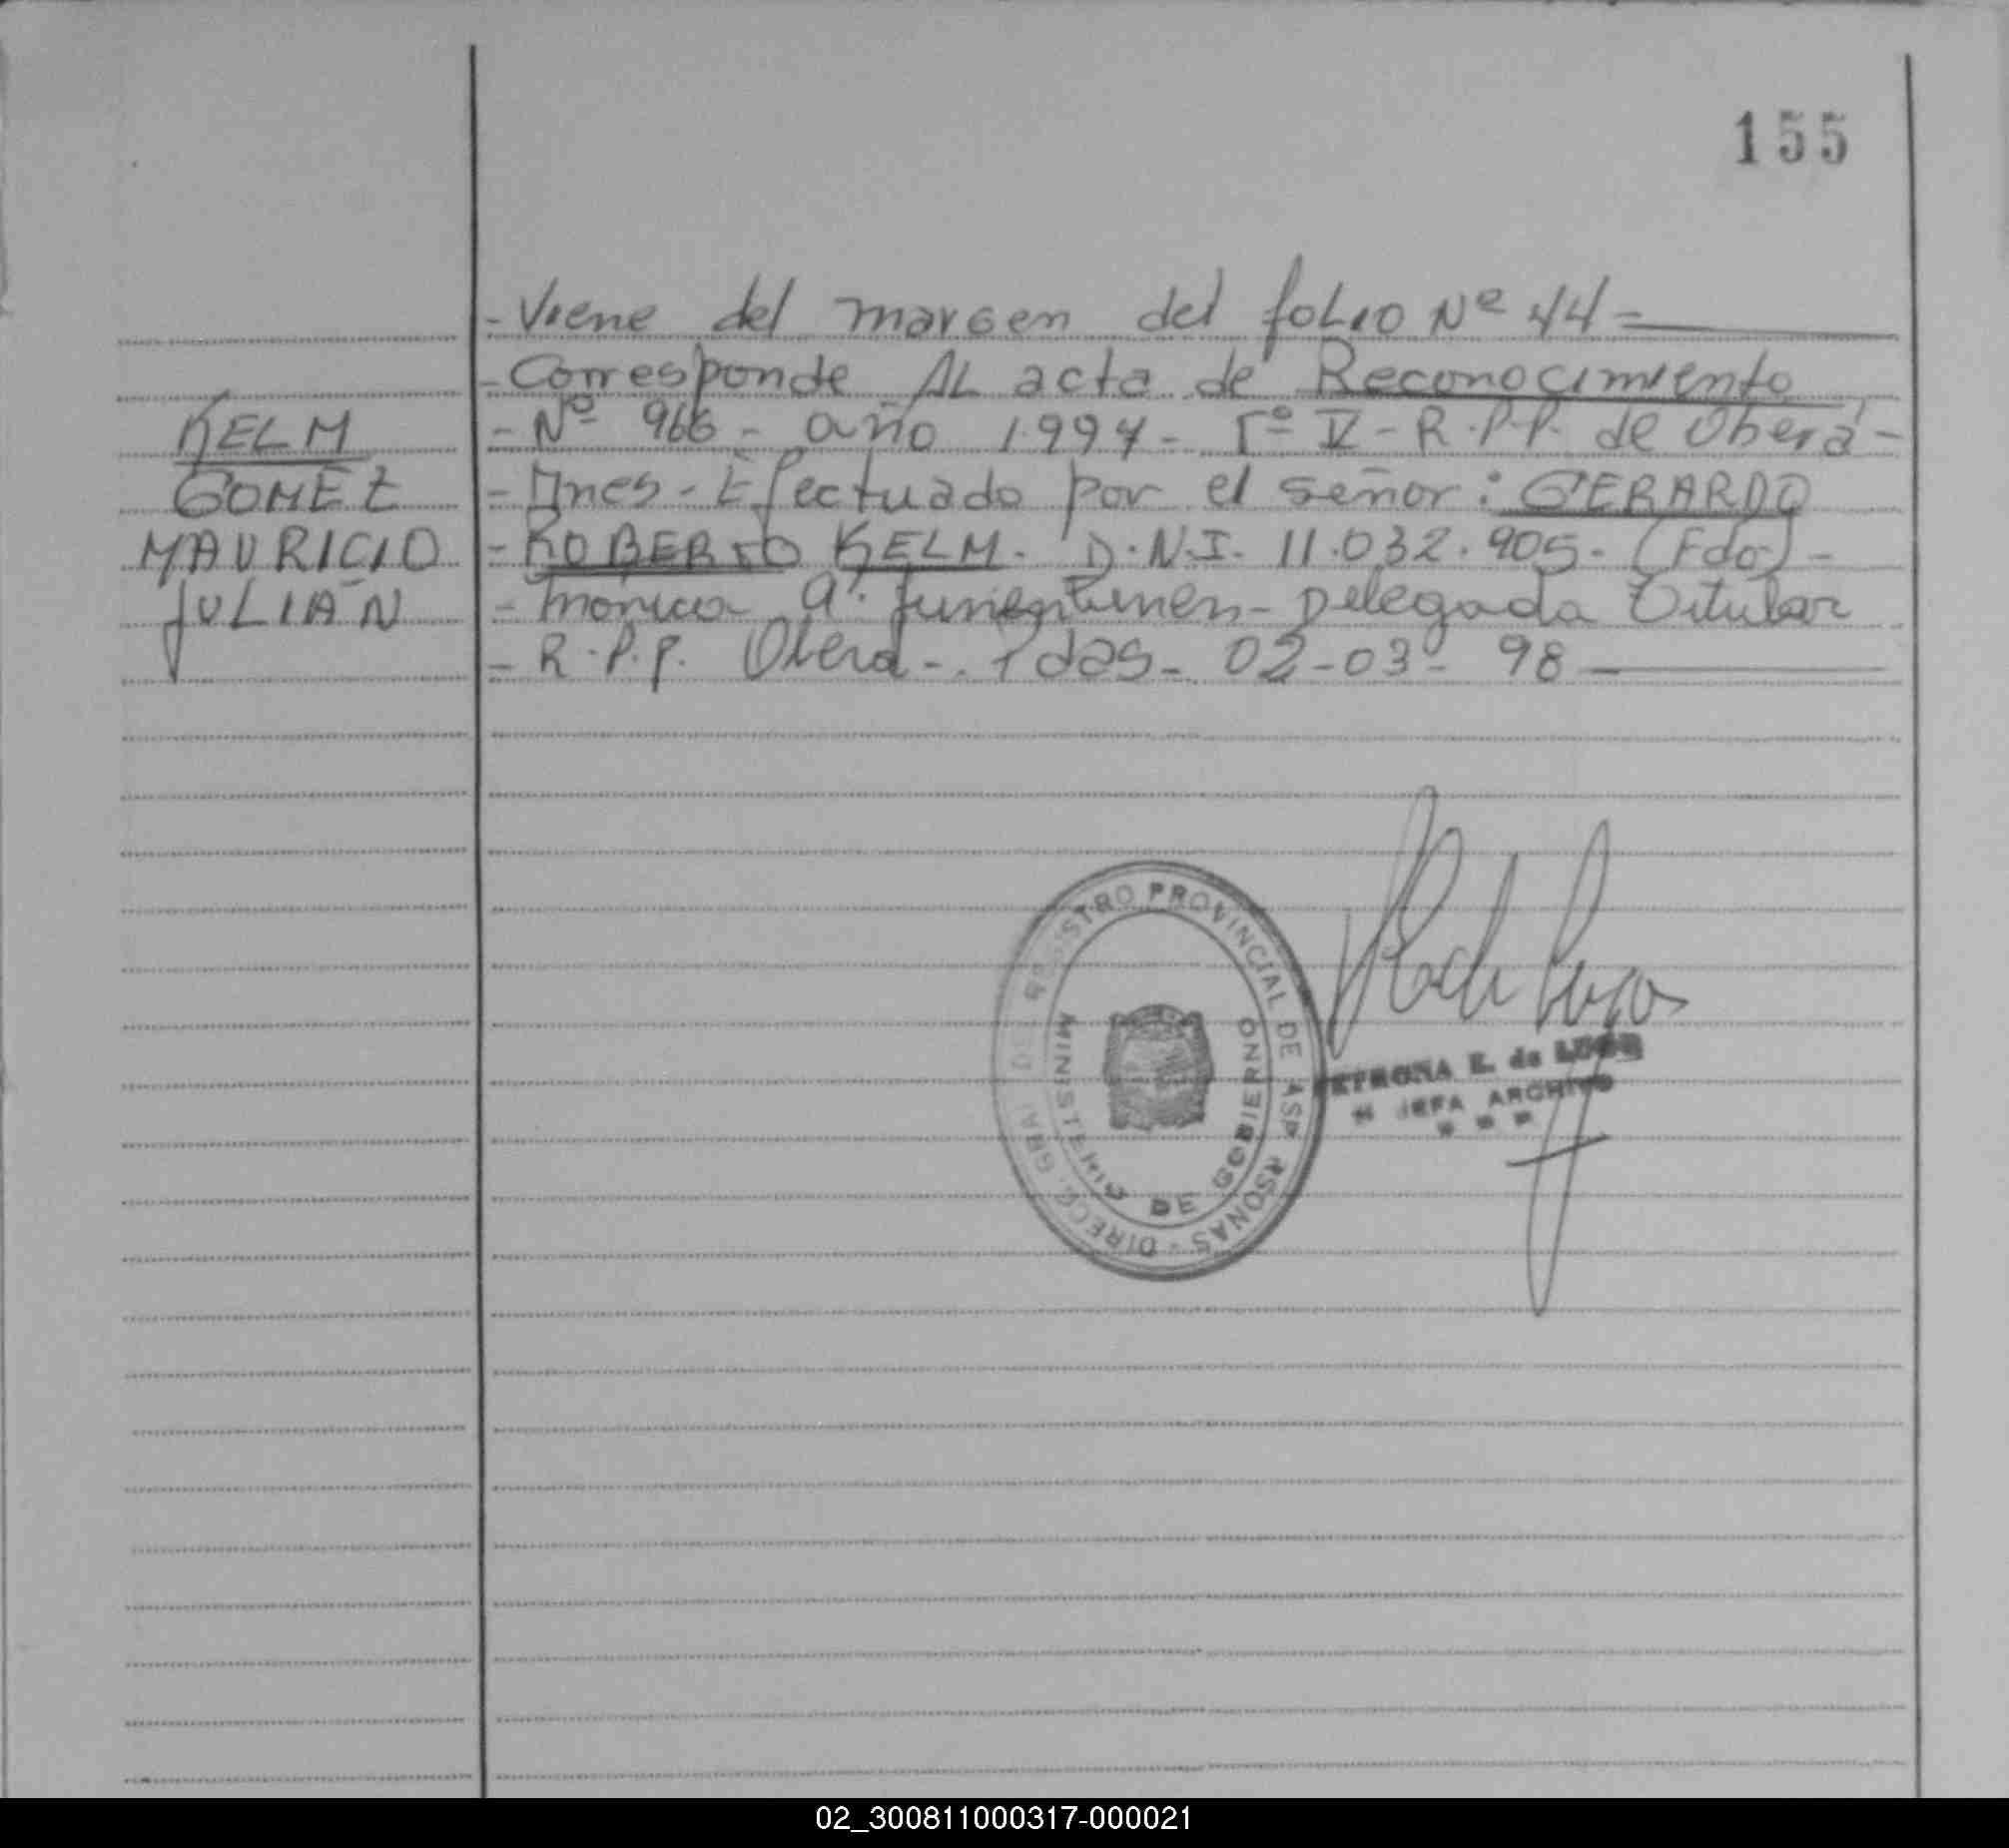 155
- Viene del margen del folio Nº 44 -
- Corresponde AL acta de Reconocimiento
KELM
- Nº 966 - año 1997 - Tº V - R.P.P. de Oberá -
GOMEZ
- Mnes - Efectuado por el señor: GERARDO
MAURICIO
- ROBERTO KELM. D.N.I. 11.032.905. (Fdo) -
JULIAN
- Monica a. - Delegada Titular
- R.P.P. Oberá - Pdas - 02-03-98 -
REGISTRO PROVINCIAL DE LAS PERSONAS - DIRECC. GRAL DEL
MINISTERIO DE GOBIERNO
PETRONA E. de
JEFA ARCHIVO
02_300811000317-000021